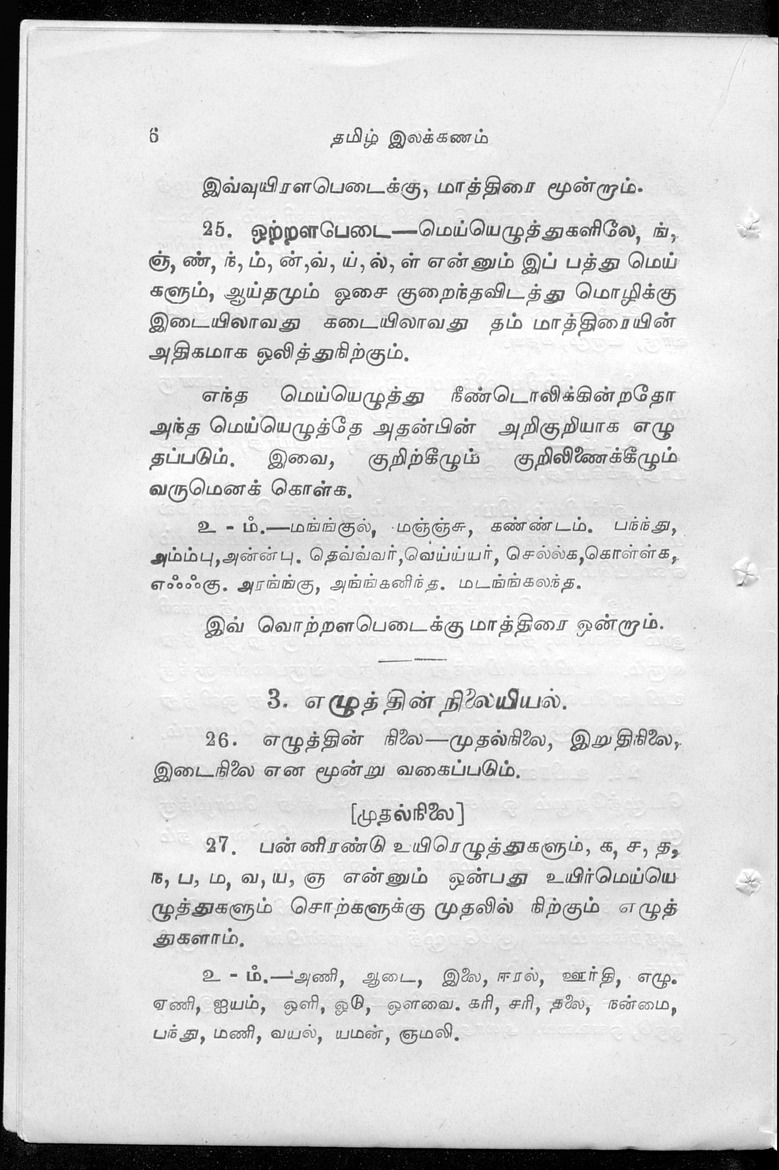 6 தமிழ் இலக்கணம்
இவ்வுயிரளபெடைக்கு, மாத்திரை மூன்றும்.
25. ஒற்றளபேடை—மெய்யெழுத்துகளிலே, ங்,
ஞ், ண், ந், ம், ன்,வ், ய், ல், ள் என்னும் இப் பத்து மெய்
களும், ஆய்தமும் ஓசை குறைந்தவிடத்து மொழிக்கு
இடையிலாவது கடையிலாவது தம் மாத்திரையின்
அதிகமாக ஒலித்துநிற்கும்.
எந்த மெய்யெழுத்து நீண்டொலிக்கின்றதோ
அந்த மெய்யெழுத்தே அதன்பின் அறிகுறியாக எழு
தப்படும். இவை, குறிற்கீழும் குறிலிணைக்கீழும்
வருமெனக் கொள்க.
உ - ம்.—மங்ங்குல், மஞ்ஞ்சு, கண்ண்டம். பந்ந்து,
அம்ம்பு,அன்ன்பு. தெவ்வ்வர்,வெய்ய்யர், செல்ல்க,கொள்ள்க,
எஃஃஃகு. அரங்ங்கு, அங்ங்கனிந்த. மடங்ங்கலந்த.
இவ் வொற்றளபெடைக்கு மாத்திரை ஒன்றும்.
3. எழுத்தின் நிலையியல்.
26. எழுத்தின் நிலை—முதல்நிலை, இறுதிநிலை,
இடைநிலை என மூன்று வகைப்படும்.
[முதல்நிலை]
27. பன்னிரண்டு உயிரெழுத்துகளும், க, ச, த,
ந, ப, ம, வ, ய, ஞ என்னும் ஒன்பது உயிர்மெய்யெ
ழுத்துகளும் சொற்களுக்கு முதலில் நிற்கும் எழுத்
துகளாம்.
உ - ம்.—அணி, ஆடை, இலை, ஈரல், ஊர்தி, எழு.
ஏணி, ஐயம், ஒளி, ஓடு, ஔவை. கரி, சரி, தலை, நன்மை,
பந்து, மணி, வயல், யமன், ஞமலி.